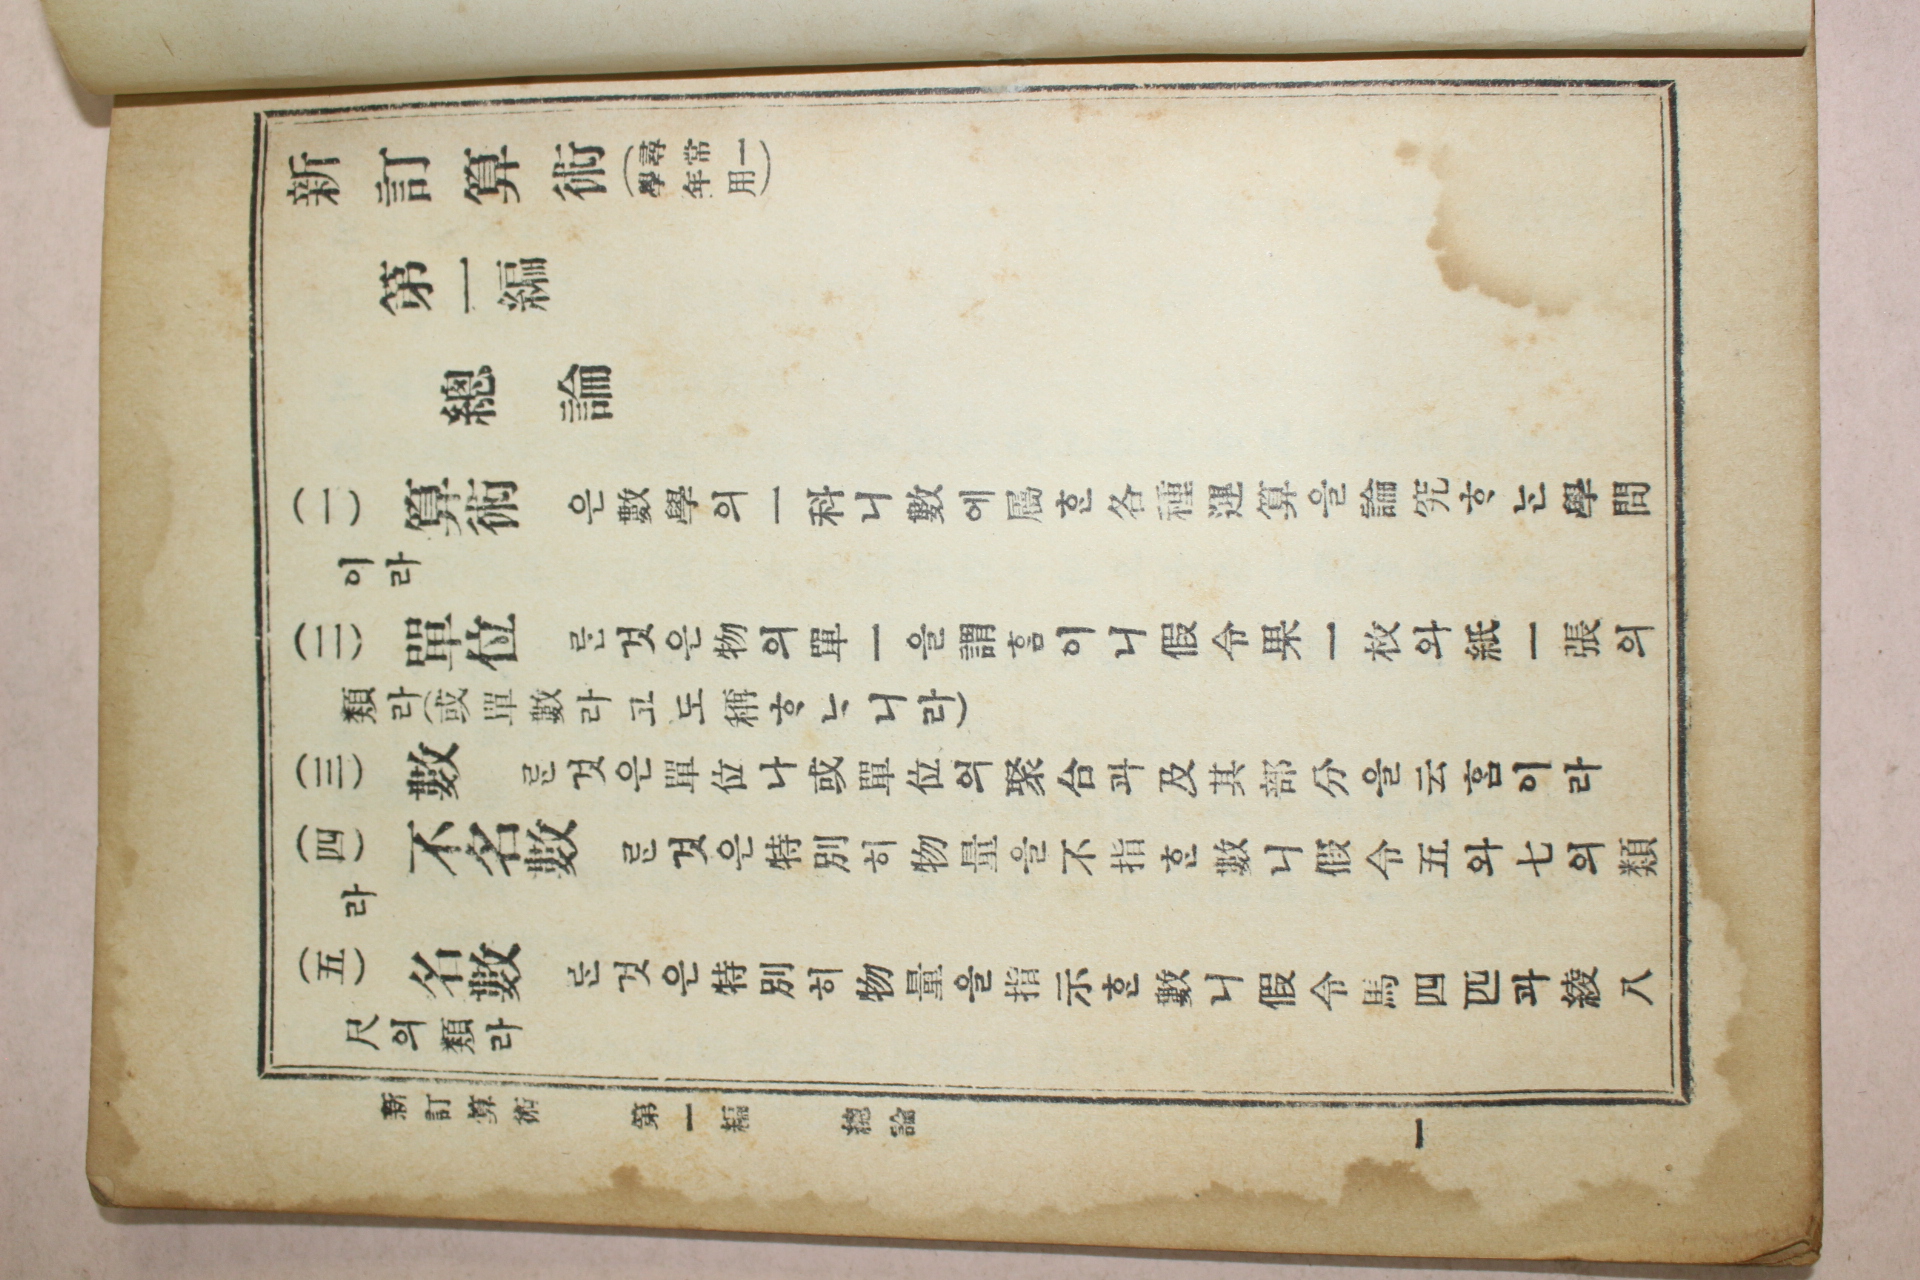 新訂算術(尋常一學年用)
第一編
總論
(一) 算術 은數學의一科니數에屬ᄒᆞᆫ各種運算을論究ᄒᆞᄂᆞᆫ學問
이라
(二) 單位 ᄅᆞᆫ것은物의單一을謂홈이니假令果一枚와紙一張의
類라(或單數라고도稱ᄒᆞᄂᆞ니라)
(三) 數 ᄅᆞᆫ것은單位나或單位의聚合과及其部分을云홈이라
(四) 不名數 ᄅᆞᆫ것은特別히物量을不指ᄒᆞᆫ數니假令五와七의類
라
(五) 名數 ᄅᆞᆫ것은特別히物量을指示ᄒᆞᆫ數니假令馬四匹과綾八
尺의類라
新訂算術 第一編 總論 一